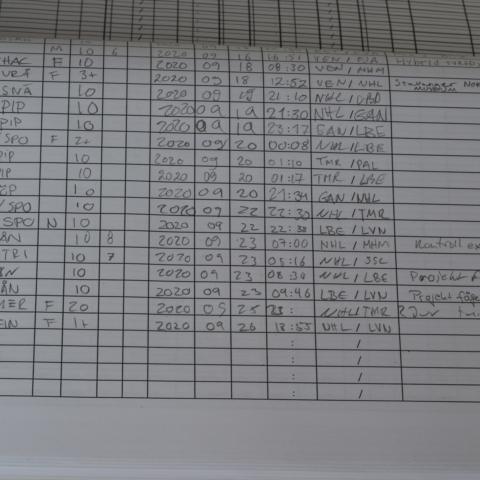 M 10 6 2020 09 16
HAC F 10 2020 09 18 08:30 VEN/MHM Hybrid
F 3+ 2020 09 18 12:52 VEN/NHL
SNÄ 10 2020 09 19 21:10 NHL/
PIP 10 2020 09 19 21:30 NHL/GAN
PIP 10 2020 09 19 23:17 GAN/LBE
SPO F 2+ 2020 09 20 00:08 NHL/LBE
PIP 10 2020 09 20 01:10 TMR/PAL
IP 10 2020 09 20 01:17 TMR/LBE
10 2020 09 20 21:34 GAN/NHL
SPO 10 2020 09 22 22:30 NHL/TMR
SPO N 10 2020 09 22 22:38 LBE/LVN
ÅN 10 8 2020 09 23 07:00 NHL/MHM Kontroll ex
TRI 10 7 2020 09 23 05:16 NHL/SSL
10 2020 09 23 08:30 NHL/LBE Projekt f
ÅN 10 2020 09 23 09:46 LBE/LVN Projekt
MER F 20 2020 25 NHL/TMR
F 1+ 2020 09 26 18:55 NHL/LVN
: /
: /
: /
: /